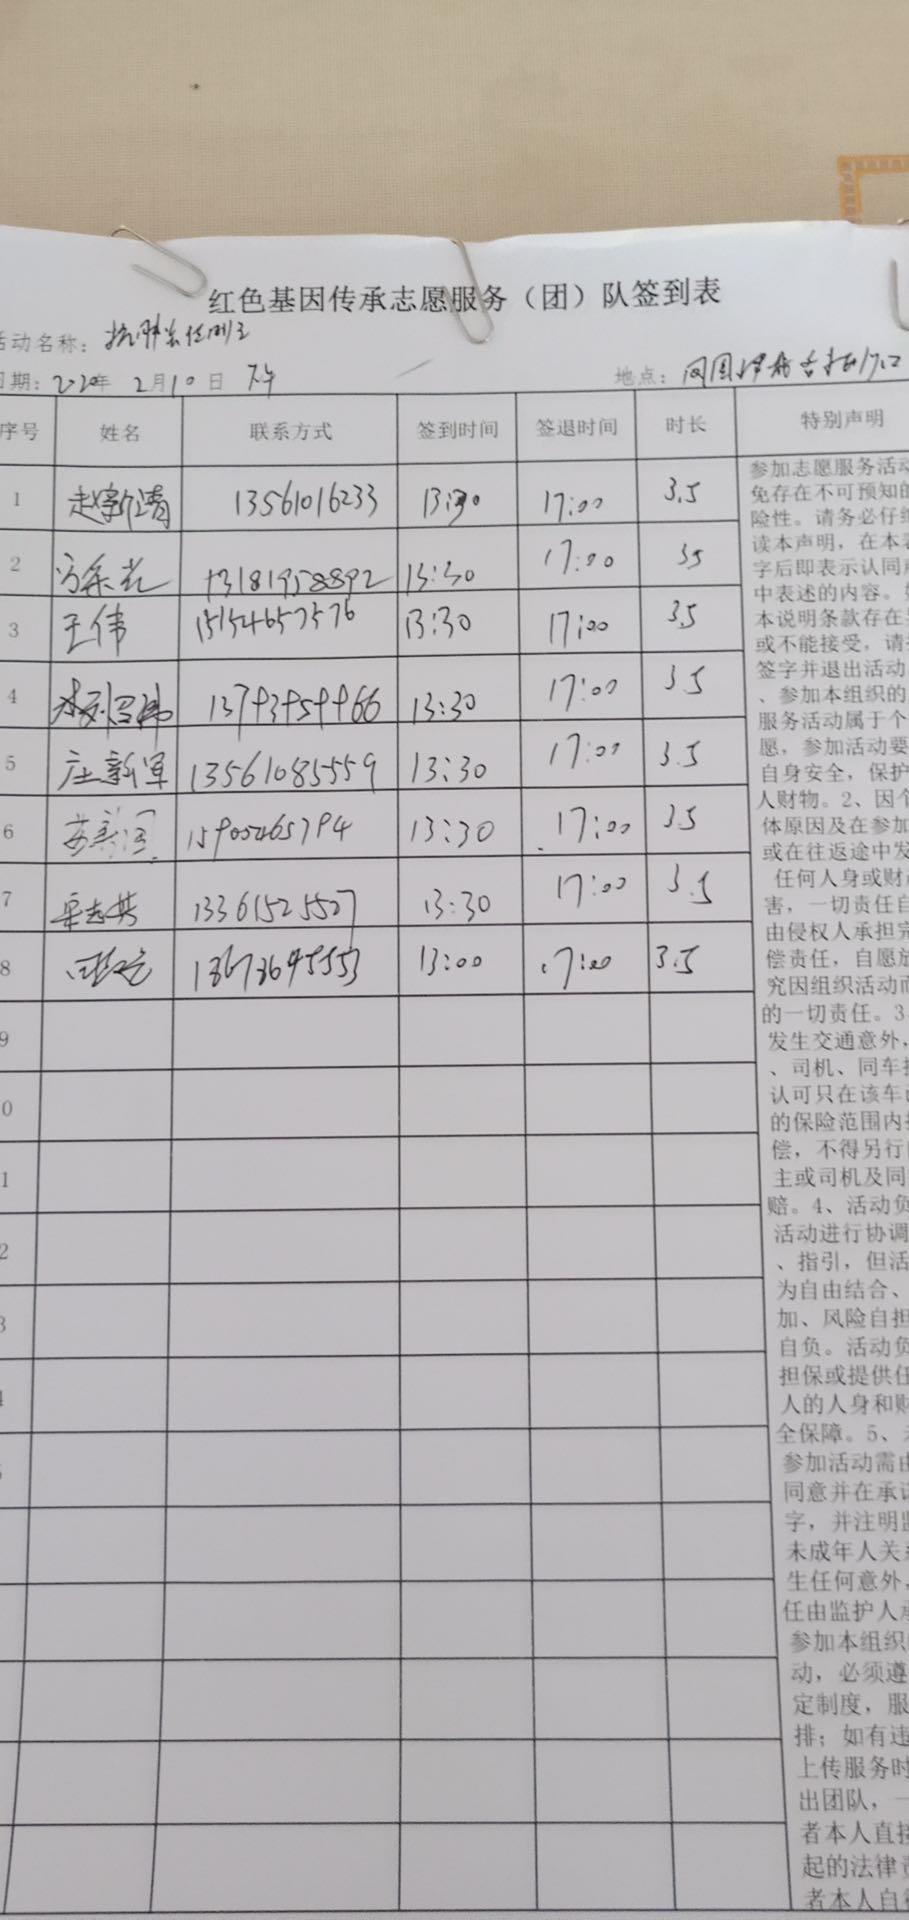 红色基因传承志愿服务（团）队签到表
活动名称：
日期：2020年 2月10日 下午
地点：
序号 姓名 联系方式 签到时间 签退时间 时长 特别声明
1 赵新清 13561016233 13:30 17:00 3.5
2 13181958892 13:30 17:00 35
3 王伟 15154657576 13:30 17:00 3.5
4 13:30 17:00 3.5
5 庄新军 13561085559 13:30 17:00 3.5
6 15905465794 13:30 17:00 3.5
7 13361525527 13:30 17:00 3.5
8 13:00 17:00 3.5
9
0
1
2
3
4
参加志愿服务活动
免存在不可预知的
险性。请务必仔细
读本声明，在本表
字后即表示认同声
中表述的内容。如
本说明条款存在异
或不能接受，请拒
签字并退出活动
、参加本组织的
服务活动属于个
愿，参加活动要
自身安全，保护
人财物。2、因个
体原因及在参加
或在往返途中发
任何人身或财产
害，一切责任自
由侵权人承担完
偿责任，自愿放
究因组织活动而
的一切责任。3
发生交通意外，
、司机、同车
认可只在该车
的保险范围内
偿，不得另行
主或司机及同
赔。4、活动负
活动进行协调
、指引，但活
为自由结合、
加、风险自担
自负。活动负
担保或提供任
人的人身和财
全保障。5、未
参加活动需由
同意并在承诺
字，并注明监
未成年人关系
生任何意外，
任由监护人承
参加本组织
动，必须遵
定制度，服
排；如有违
上传服务时
出团队，一
者本人直接
起的法律责
者本人自行